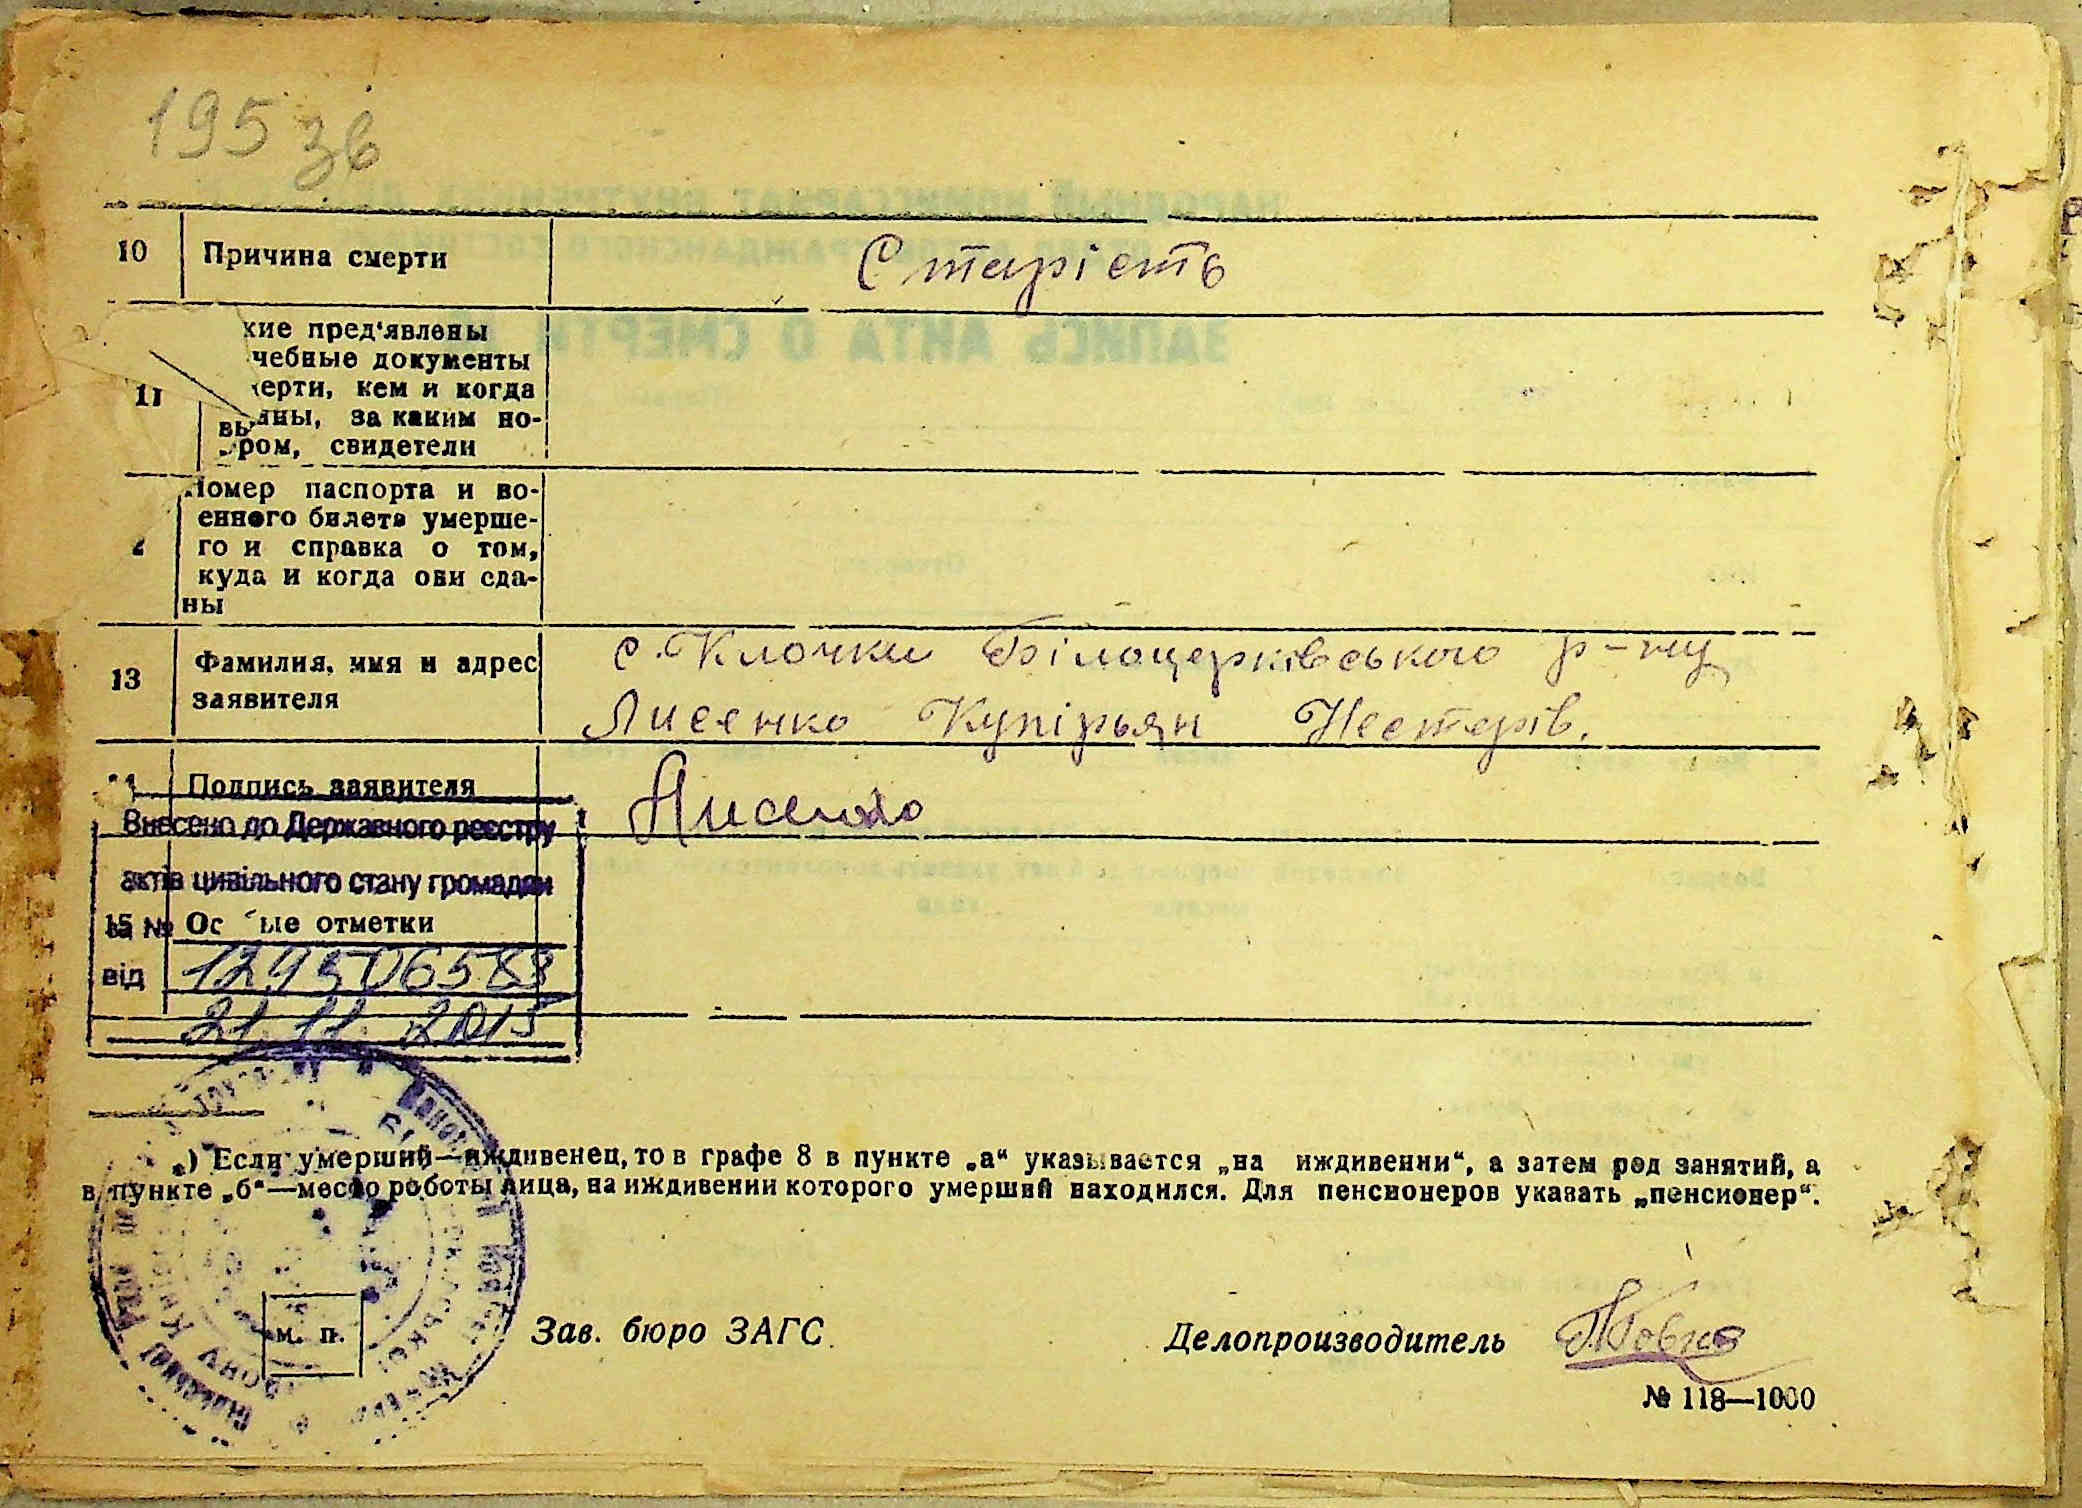 195 зв
10 Причина смерти Старість
кие пред'явлены
чебные документы
11 ерти, кем и когда
ны, за каким но-
ром, свидетели
Номер паспорта и во-
енного билета умерше-
го и справка о том,
куда и когда они сда-
ны
13 Фамилия, имя и адрес заявителя
с. Клочки Білоцерківського р-ну
Лисенко Купірьян Нестерів.
Подпись заявителя Лисенко
Внесено до Державного реєстру
актів цивільного стану громадян
15 Ос ые отметки
за №
від 129506583
21.11.2015
*) Если умерший—иждивенец, то в графе 8 в пункте „а“ указывается „на иждивении“, а затем род занятий, а
в пункте „б“—место роботы лица, на иждивении которого умерший находился. Для пенсионеров указать „пенсионер“.
м. п. Зав. бюро ЗАГС Делопроизводитель
№ 118—1000